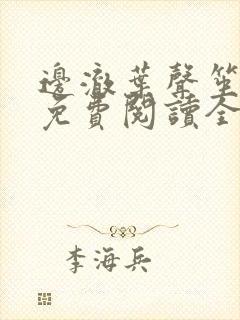 邊澈葉聲笙
免費閱讀全
李海兵